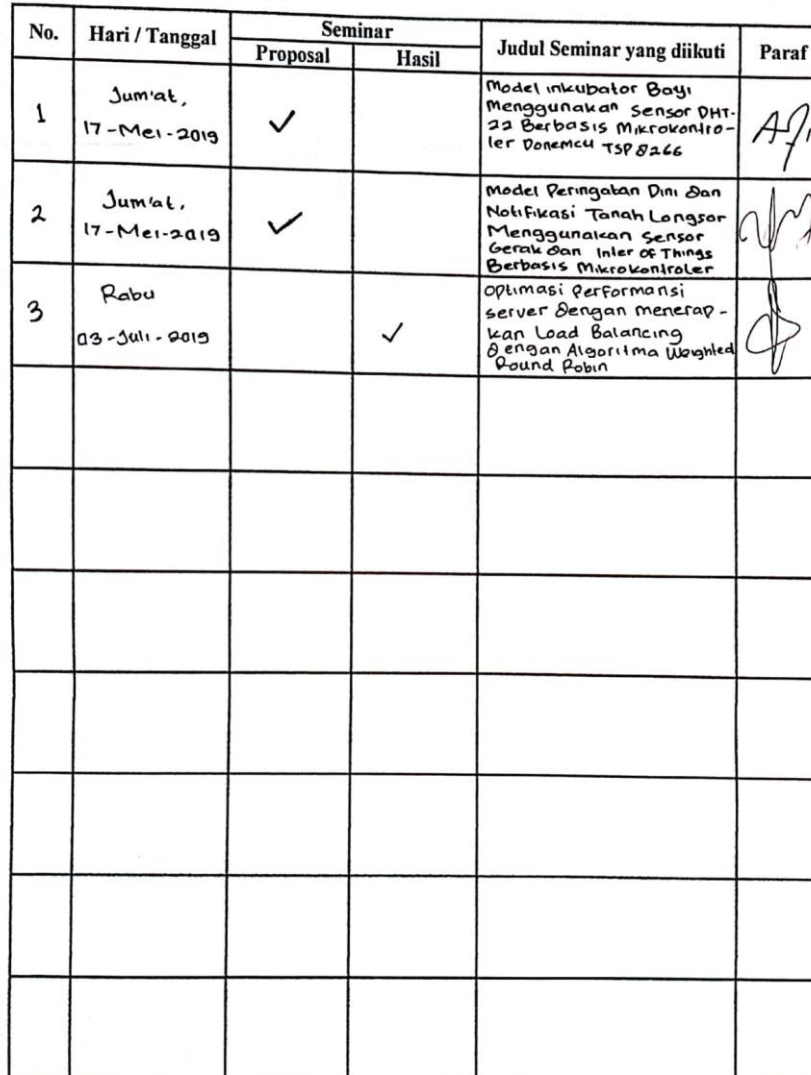 No. Hari / Tanggal Seminar Judul Seminar yang diikuti Paraf
Proposal Hasil
1 Jum'at, 17-Mei-2019 ✓
Model inkubator Bayi
Menggunakan Sensor DHT-
22 Berbasis Mikrokontro-
ler Donemcu TSP 8266
2 Jum'at, 17-Mei-2019 ✓
Model Peringatan Dini Dan
Notifikasi Tanah Longsor
Menggunakan Sensor
Gerak Dan Inter of Things
Berbasis Mikrokontroler
3 Rabu 03-Juli-2019 ✓
Optimasi Performansi
server Dengan menerap-
kan Load Balancing
Dengan Algoritma Weighted
Round Robin